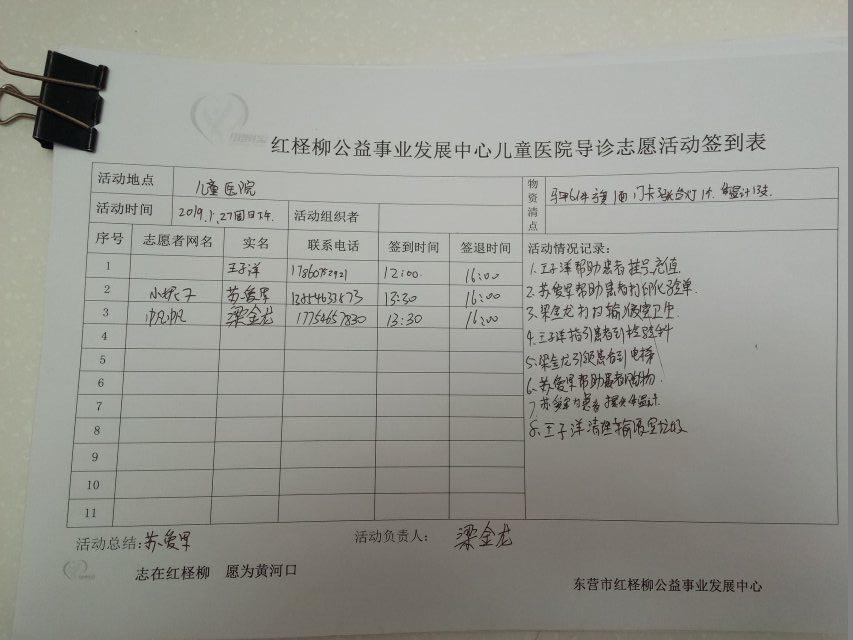 红柽柳公益事业发展中心儿童医院导诊志愿活动签到表
活动地点 儿童医院 物资清点
活动时间 2019.1.27 活动组织者
序号 志愿者网名 实名 联系电话 签到时间 签退时间 活动情况记录:
1 王子洋 12:00 16:00
2 苏爱军 13:30 16:00
3 帆帆 梁金龙 17754657830 13:30 16:00
4
5
6
7
8
9
10
11
1.王子洋帮助患者挂号充值
2.苏爱军帮助患者打印化验单.
3.梁金龙打扫输液室卫生
4.王子洋指引患者到检验科
5.梁金龙引领患者到电梯
6.苏爱军帮助患者购物.
7.苏爱军为患者
8.王子洋清理输液室垃圾
活动总结:苏爱军 活动负责人: 梁金龙
志在红柽柳 愿为黄河口
东营市红柽柳公益事业发展中心